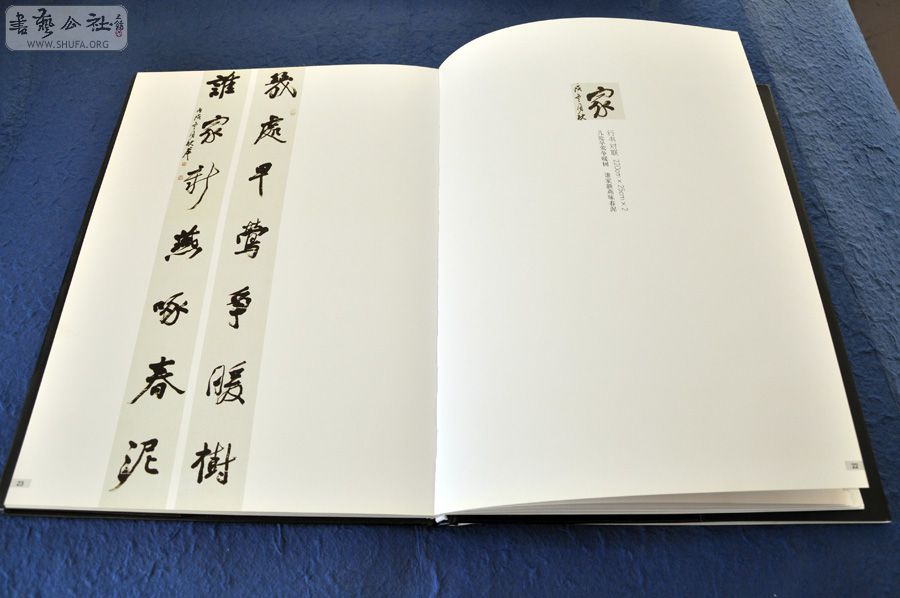 書藝公社
WWW.SHUFA.ORG
家
行书对联 × 25cm × 2
几处早莺争暖树 谁家新燕啄春泥
22
幾處早鶯爭暖樹
誰家新燕啄春泥
23